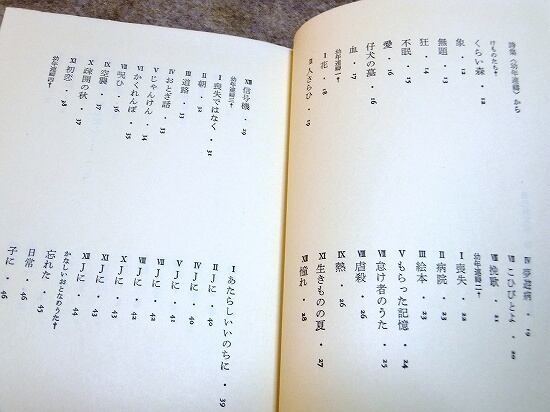 詩集〈幼年連禱〉から
けものたち†
くらい森・12
象・12
無題・13
狂・14
不眠・15
愛・16
仔犬の墓・16
血・17
幼年連禱一†
I 花・18
II 人さらひ・19
IV 夢遊病・19
VII こひびとよ・20
VIII 挽歌・21
幼年連禱二†
I 喪失・22
II 病院・23
III 絵本・23
V もらった記憶・24
VII 怠け者のうた・25
VIII 虐殺・26
IX 熱・26
XI 生きものの夏・27
XII 憧れ・28
XIII 信号機・29
幼年連禱三†
I 喪失ではなく・31
II 朝・32
III 道路・33
IV おとぎ話・33
V じゃんけん・34
VI かくれんぼ・35
VII 呪ひ・36
IX 空襲・37
X 疎開の秋・37
XI 初恋・38
幼年連禱四†
I あたらしいいのちに・39
II Jに・40
IV Jに・41
V Jに・42
VII Jに・42
VIII Jに・43
X Jに・43
XI Jに・44
XII Jに・44
かなしいおとなのうた†
忘れた・45
日常・46
子に・46